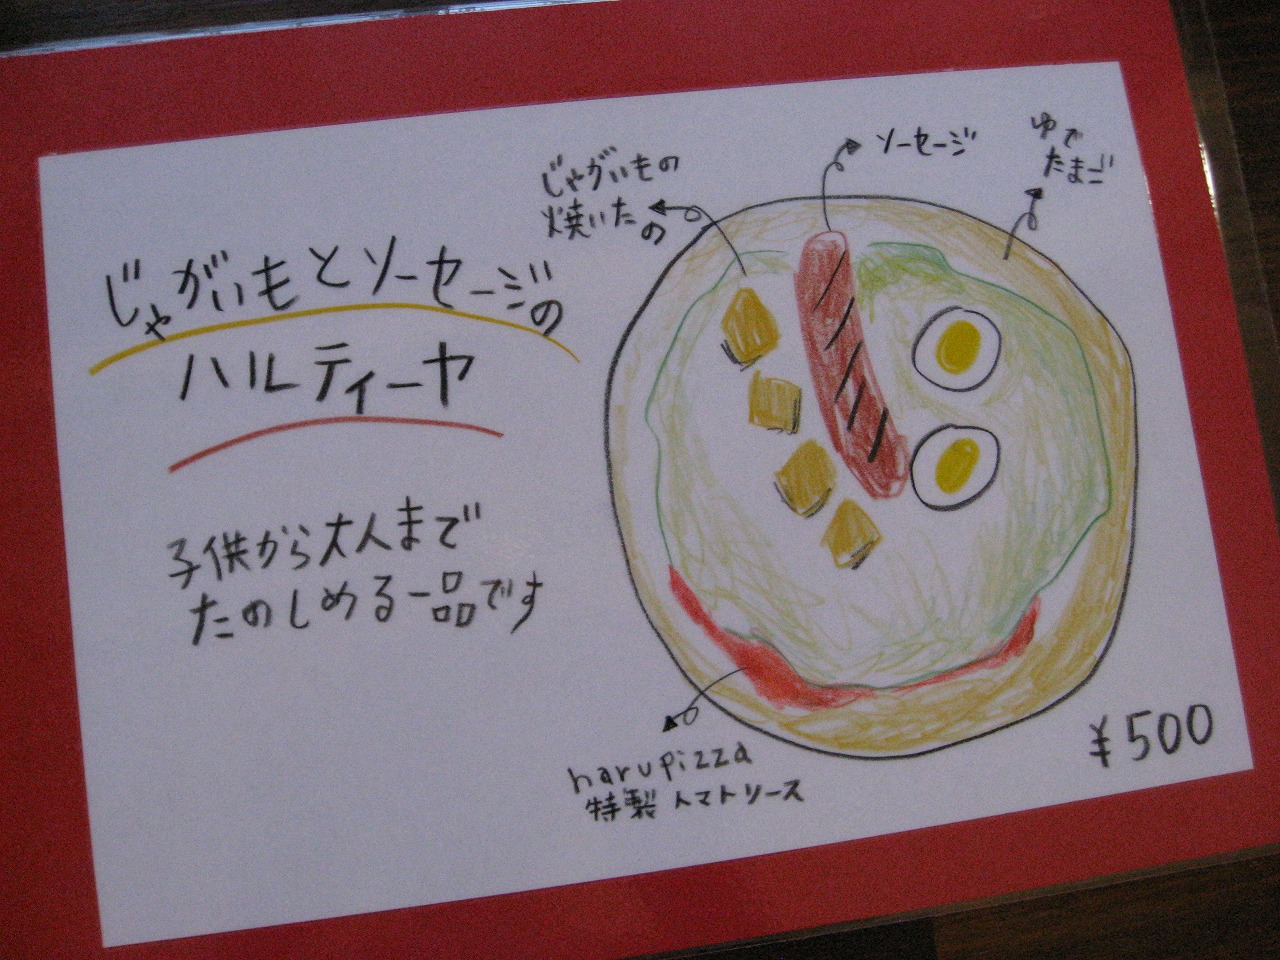 じゃがいもとソーセージの
ハルティーヤ
子供から大人まで
たのしめる一品です
じゃがいもの
焼いたの
ソーセージ
ゆで
たまご
harupizza
特製トマトソース
¥500